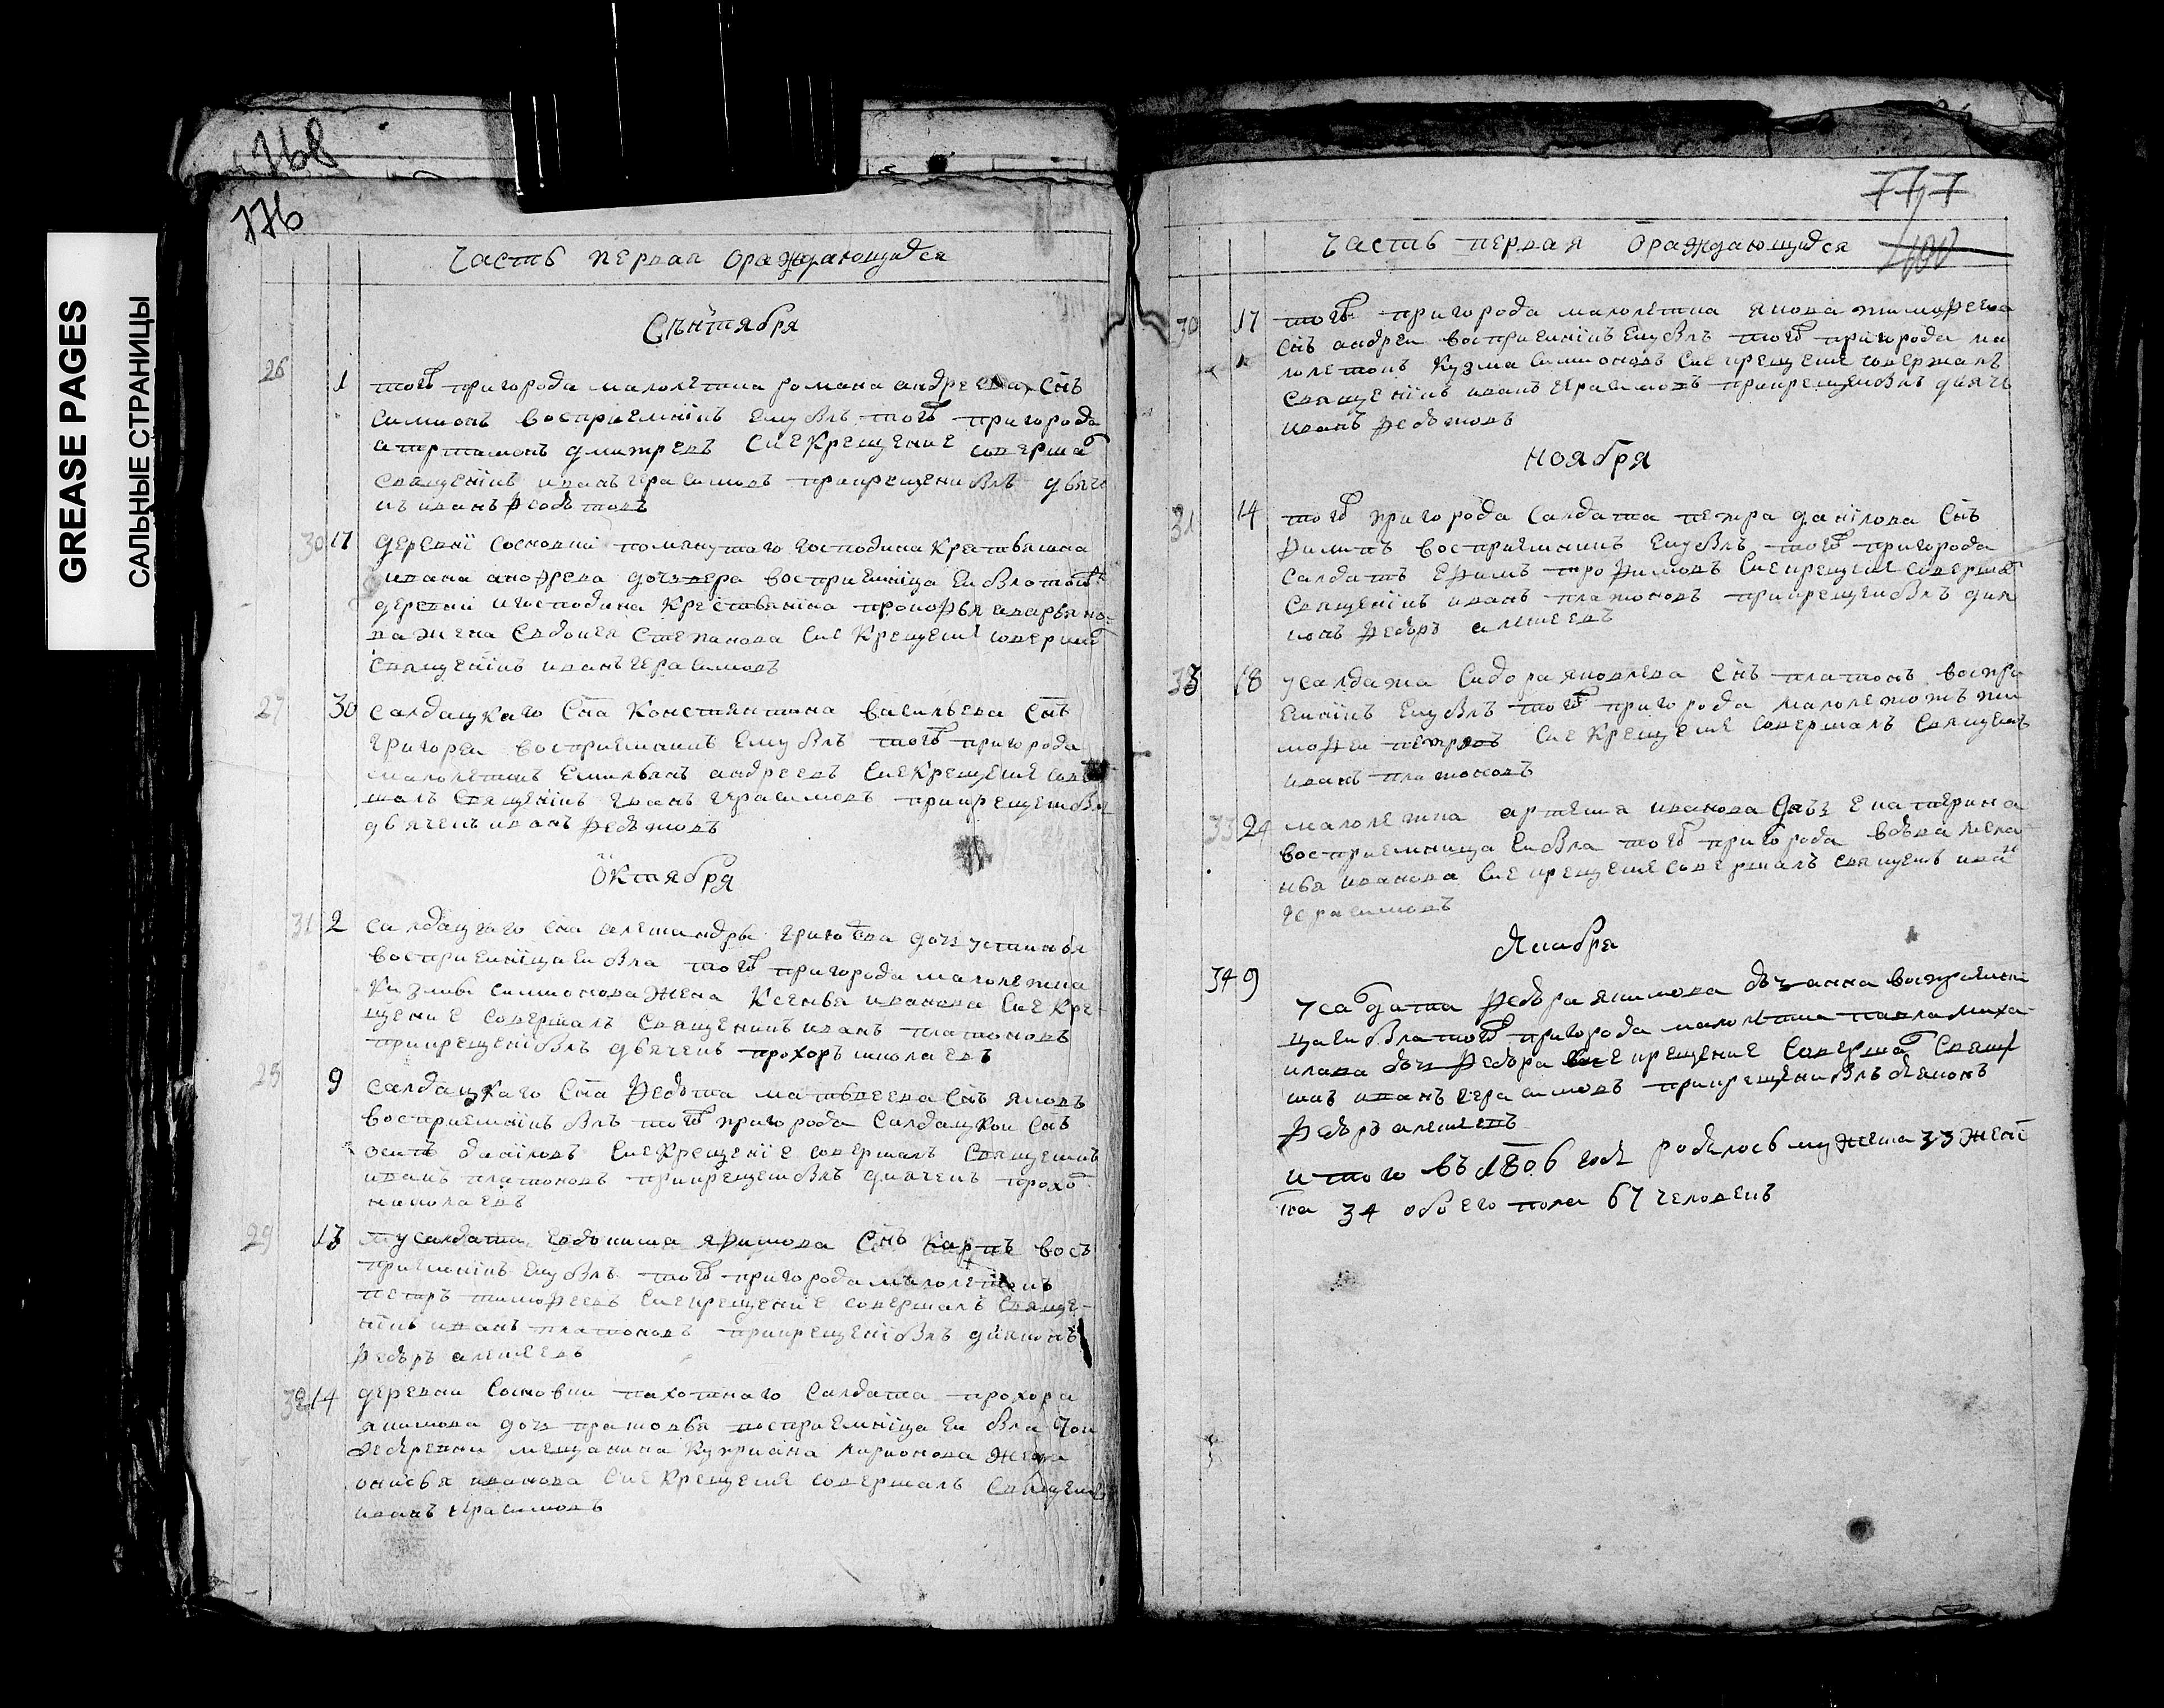 GREASE PAGES
САЛЬНЫЕ СТРАНИЦЫ
768
776
Часть первая ораждающихся
Сентября
26 1 того пригорода малолетка романа андреева снъ
симионъ восприемникъ ему былъ того пригорода
дмитревъ Сие Крещение соверша
священикъ иванъ Герасимовъ прикрещени былъ дьяче
къ иванъ Федотовъ
30 17 деревни сосновки помянутого господина крестьянина
ивана дочь вера восприемница ей была тойже
деревни и господина крестьянина прокофья
ва жена Евдокея Степанова Сие Крещение соверша
священикъ иванъ герасимовъ
27 30 салдацкаго сна Констянтина васильева снъ
григореи восприемникъ ему былъ того пригорода
малолетокъ Емильянъ андреевъ Сие Крещение совер
шалъ священикъ иванъ герасимовъ прикрещени былъ
дьячекъ иванъ Федотовъ
Октября
31 2 салдацкаго сна александры дочь устинья
восприемница ей была того пригорода малолетка
Кузмы симионова жена Ксенья иванова Сие Кре-
щение совершалъ священникъ иванъ платоновъ
прикрещени былъ дьячекъ прохоръ николаевъ
28 9 салдацкаго сна Федота матвеева снъ яковъ
восприемникъ былъ того пригорода салдацкой снъ
осипъ даниловъ Сие Крещение совершалъ священикъ
иванъ платоновъ прикрещени былъ дьячекъ прохо
николаевъ
29 13 у салдата евдокима снъ Карпъ вос
приемникъ ему былъ того пригорода малолетокъ
петръ тимофеевъ Сие крещение совершалъ свяще-
никъ иванъ платоновъ прикрещени былъ диаконъ
Федоръ алексеевъ
32 14 деревни сосновки пахотнаго салдата прохора
якимова дочь прасковья восприемница ей была тои
деревни мещанина Куприяна ларионова жена
онисья иванова Сие Крещение совершалъ священикъ
иванъ герасимовъ
777
400
Часть первая ораждающихся
30 17 того пригорода малолетка якова тимофеева
снъ андреи восприемникъ ему былъ того пригорода ма
лолетокъ Кузма симионовъ Сие крещение совершалъ
священикъ иванъ герасимовъ прикрещени былъ дьяче
иванъ Федотовъ
ноября
31 14 того пригорода салдата петра данилова снъ
Филипъ восприемникъ ему былъ того пригорода
салдатъ ефимъ трофимовъ Сие крещение соверша
священикъ иванъ платоновъ прикрещени былъ диа
конъ Федоръ алексеевъ
33 18 у салдата Сидора яковлева снъ платонъ воспри
емникъ ему былъ того пригорода малолетокъ ти
мофеи петровъ Сие Крещение совершалъ священикъ
иванъ платоновъ
33 24 малолетка артемя иванова дочь Екатерина
восприемница ей была того пригорода вдова
иванова Сие крещение совершалъ священикъ иванъ
герасимовъ
Декабря
34 9 у салдата Федора якимова дочь анна восприемни
ца ей была того пригорода малолетка павла миха
илова дочь Федора Сие крещение соверша свяще
никъ иванъ герасимовъ прикрещени былъ дьяконъ
Федоръ алексеевъ
итого въ 1806 годе родилось мужеска 33 женс
ка 34 обоего пола 67 человекъ